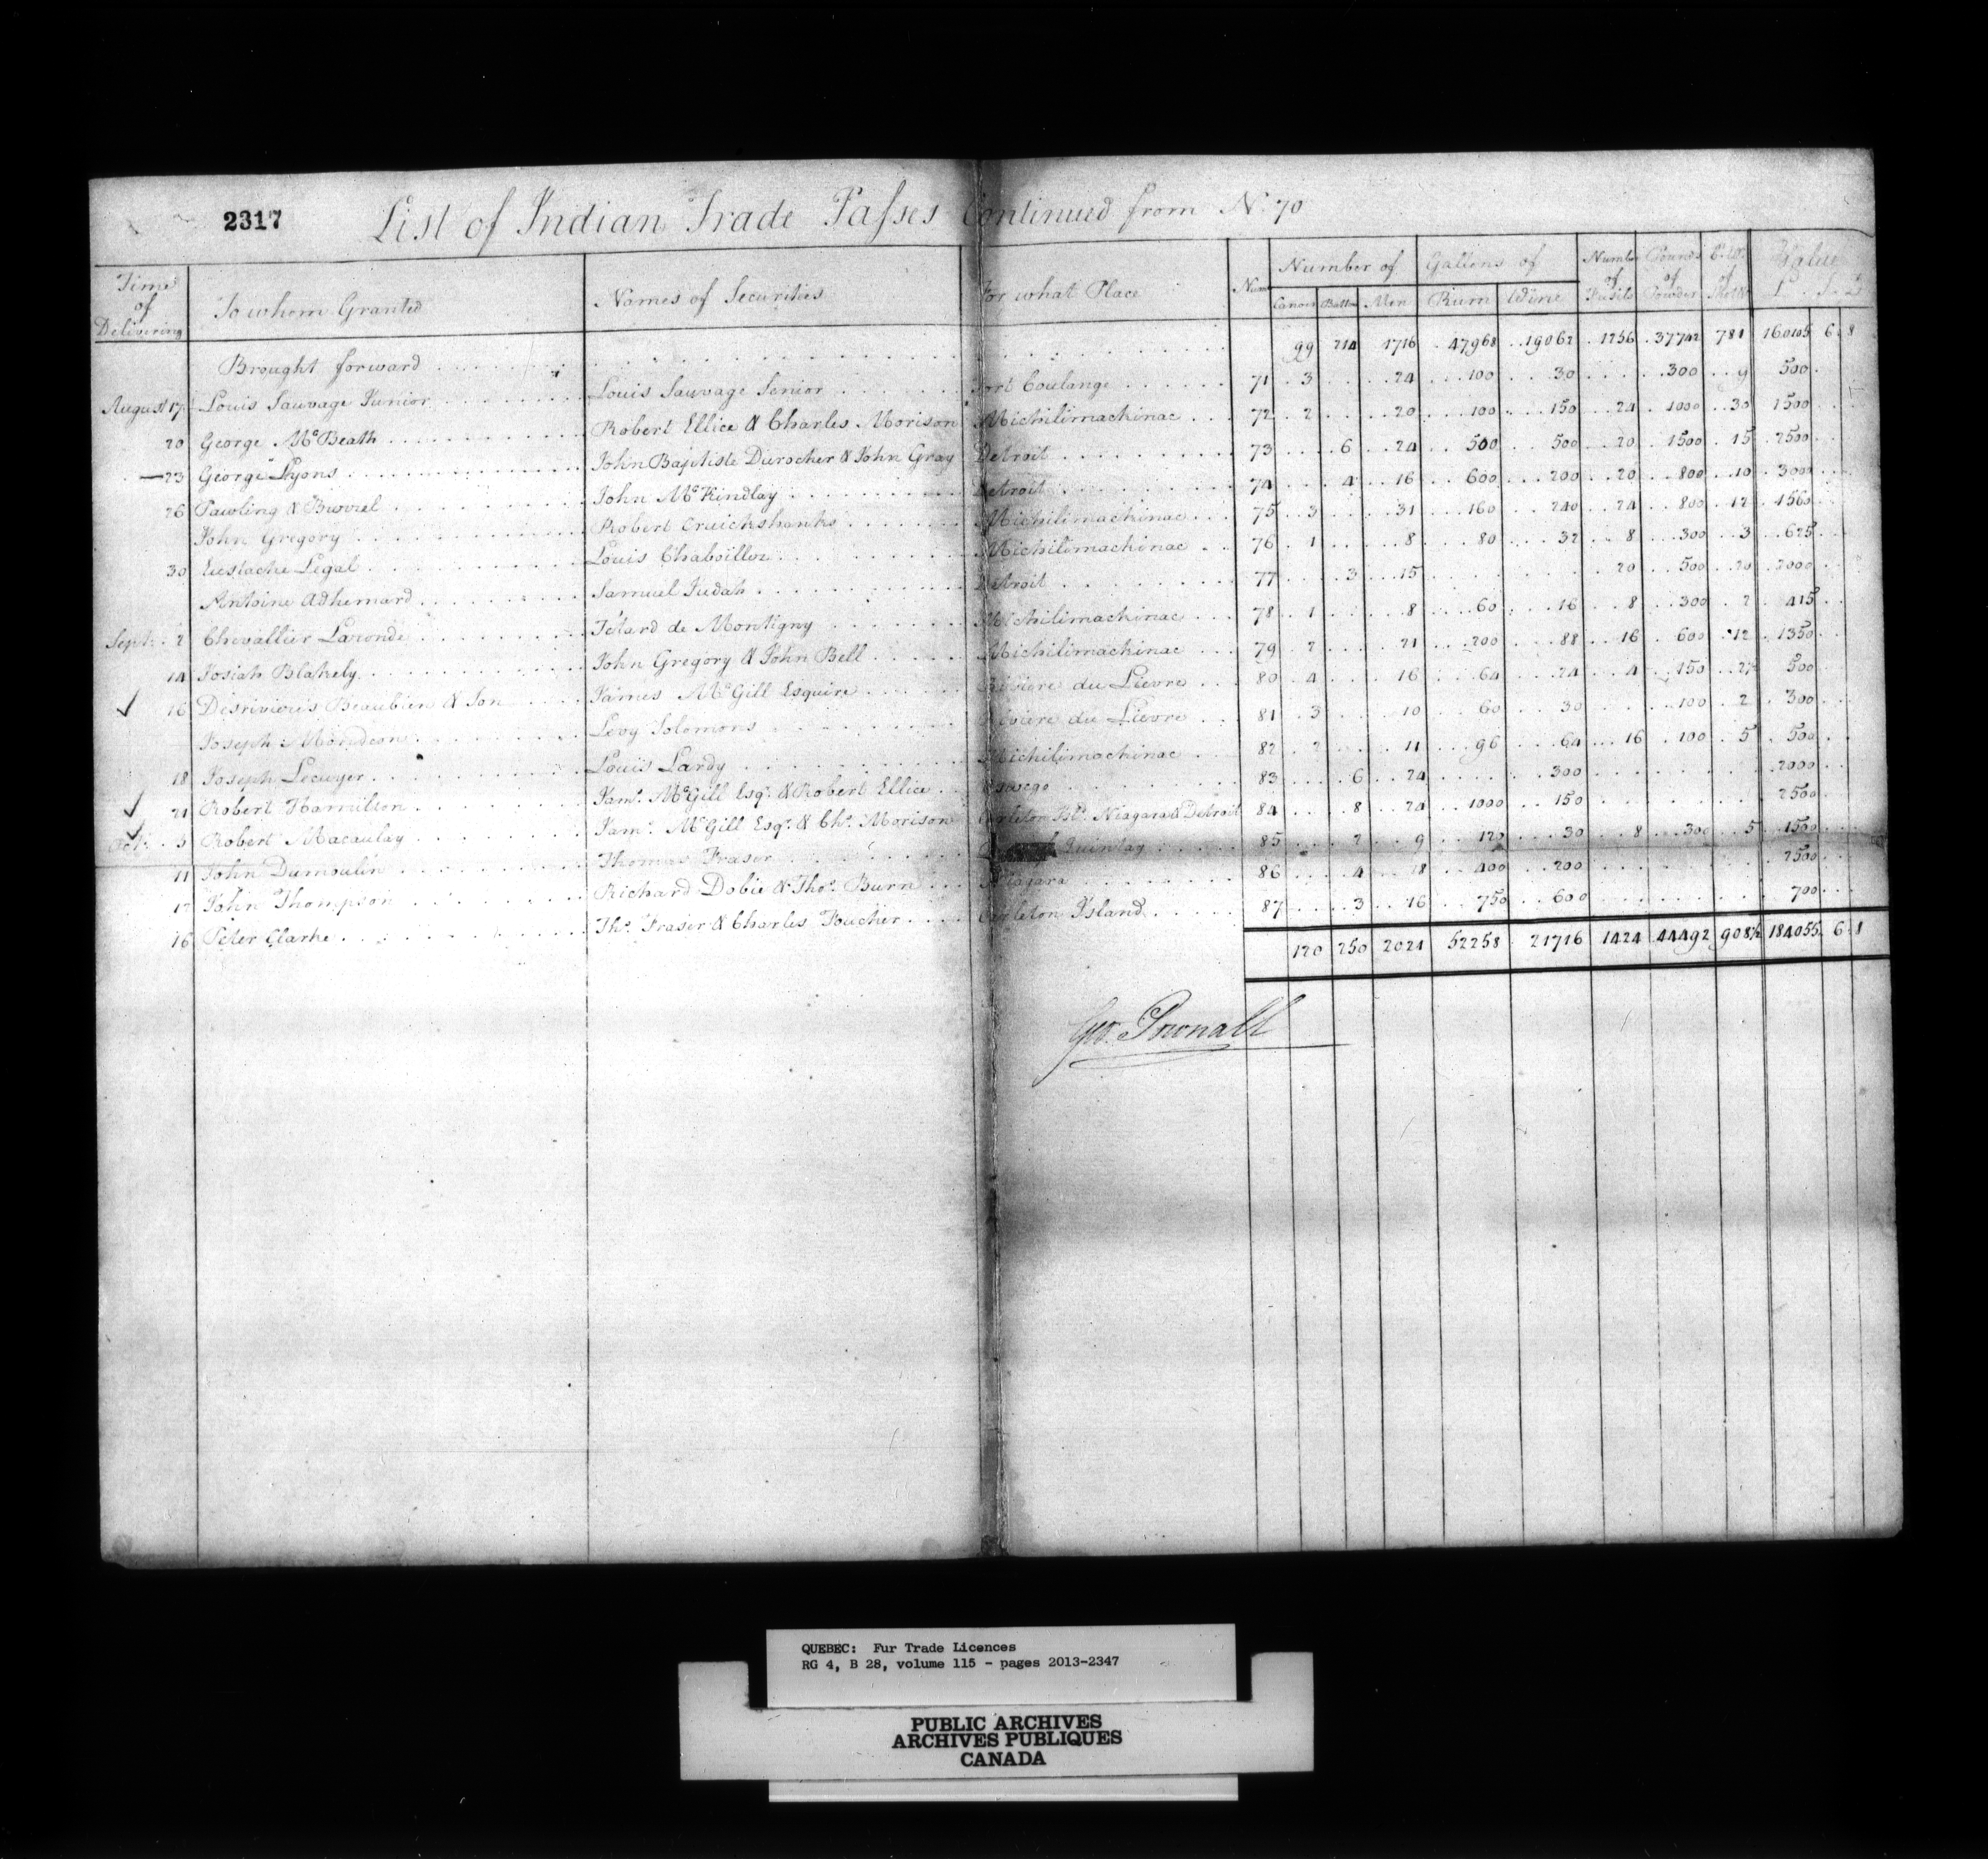 2317 List of Indian Trade Passes Continued from N. 70
Time of Delivering To whom Granted Names of Securities For what Place Num Number of Canoes Batto Men Gallons of Rum Wine Number of Fusils Pounds of Powder C. Wt. of Value L S D
Brought forward 99 214 1716 47968 19062 1256 37742 781 160105 6 8
August 17 Louis Sauvage Junior Louis Sauvage Senior Fort Coulange 71 3 24 100 30 300 9 500
20 George McBeath Robert Ellice & Charles Morison Michilimachinac 72 2 20 100 150 24 1000 30 1500
23 George Lyons John Baptiste Durocher & John Gray Detroit 73 6 24 500 500 20 1500 15 2500
26 Pawling & Burrel John McKindlay Detroit 74 4 16 600 200 20 800 10 3000
John Gregory Robert Cruickshanks Michilimachinac 75 3 31 160 240 24 800 12 1560
30 Eustache Legal Louis Chaboillez Michilimachinac 76 1 8 80 32 8 300 3 625
Antoine Adhemard Samuel Judah Detroit 77 3 15 20 500 20 2000
Sept. 2 Chevallier Laronde Tetard de Montigny Michilimachinac 78 1 8 60 16 8 300 2 415
14 Josiah Blakely John Gregory & John Bell Michilimachinac 79 2 21 200 88 16 600 12 1350
16 Desrivieres Beaubien & Son James McGill Esquire Riviere du Lievre 80 4 16 64 24 4 150 2½ 500
Joseph Levy Solomons Riviere du Lievre 81 3 10 60 30 100 2 300
18 Joseph Lecuyer Louis Lardy Michilimachinac 82 2 11 96 64 16 100 5 500
21 Robert Hamilton Jam. McGill Esqr. & Robert Ellice Oswego 83 6 24 300 2000
Oct. 3 Robert Macaulay Jam. McGill Esqr. & Chs. Morison Carleton Isd. Niagara & Detroit 84 8 24 1000 150 2500
11 John Dumoulin Thomas Fraser Quintay 85 2 9 120 30 8 300 5 1500
17 John Thompson Richard Dobie & Thos. Burn Niagara 86 4 18 400 200 2500
16 Peter Clarke Ths. Fraser & Charles Foucher Carleton Island 87 3 16 750 600 700
120 250 2021 52258 21716 1424 44492 908½ 184055 6 8
Geo. Pownall
QUEBEC: Fur Trade Licences
RG 4, B 28, volume 115 - pages 2013-2347
PUBLIC ARCHIVES
ARCHIVES PUBLIQUES
CANADA